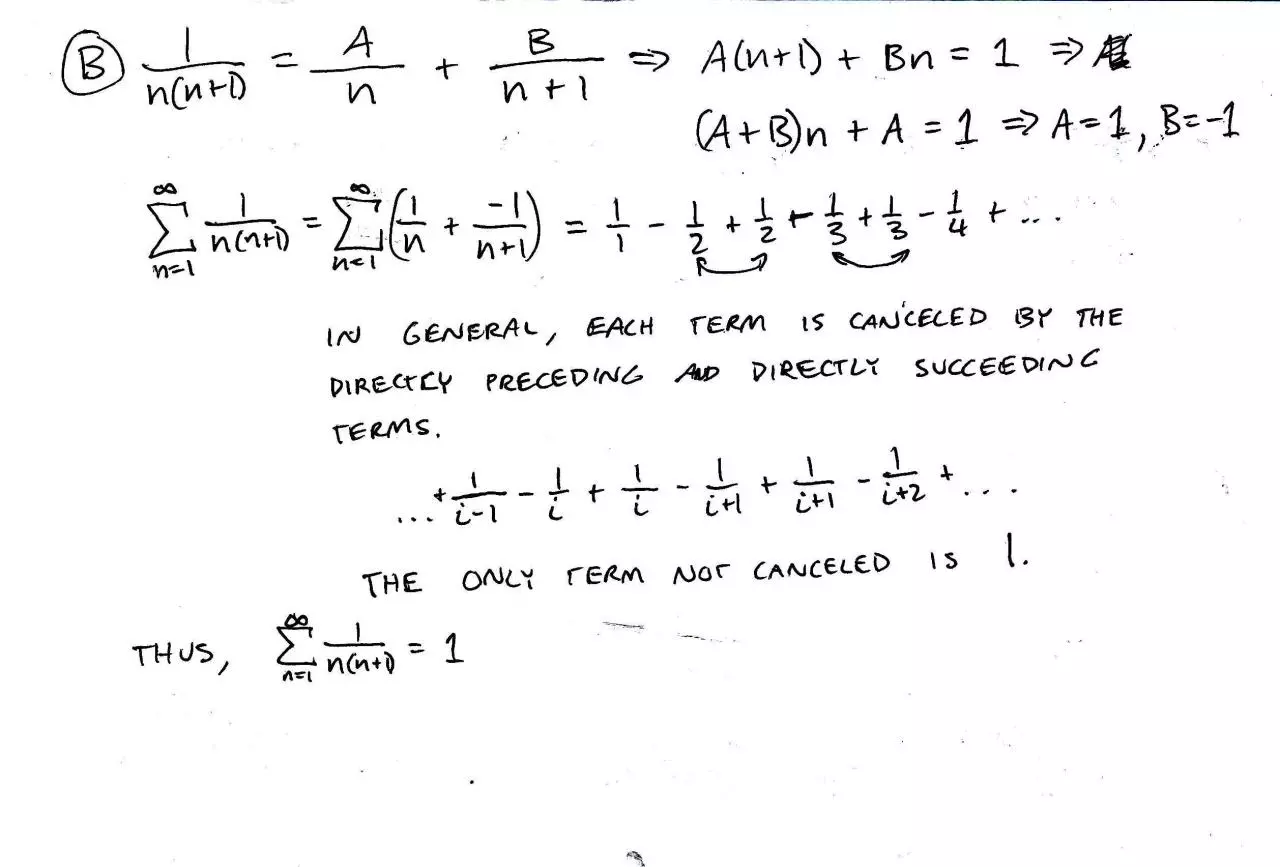 (B) 1/(n(n+1)) = A/n + B/(n+1) ⇒ A(n+1) + Bn = 1 ⇒
(A+B)n + A = 1 ⇒ A=1, B=-1
∑_{n=1}^{∞} 1/(n(n+1)) = ∑_{n=1}^{∞} (1/n + -1/(n+1)) = 1/1 - 1/2 + 1/2 - 1/3 + 1/3 - 1/4 + ...
IN GENERAL, EACH TERM IS CANCELED BY THE
DIRECTLY PRECEDING AND DIRECTLY SUCCEEDING
TERMS.
... + 1/(i-1) - 1/i + 1/i - 1/(i+1) + 1/(i+1) - 1/(i+2) + ...
THE ONLY TERM NOT CANCELED IS 1.
THUS, ∑_{n=1}^{∞} 1/(n(n+1)) = 1